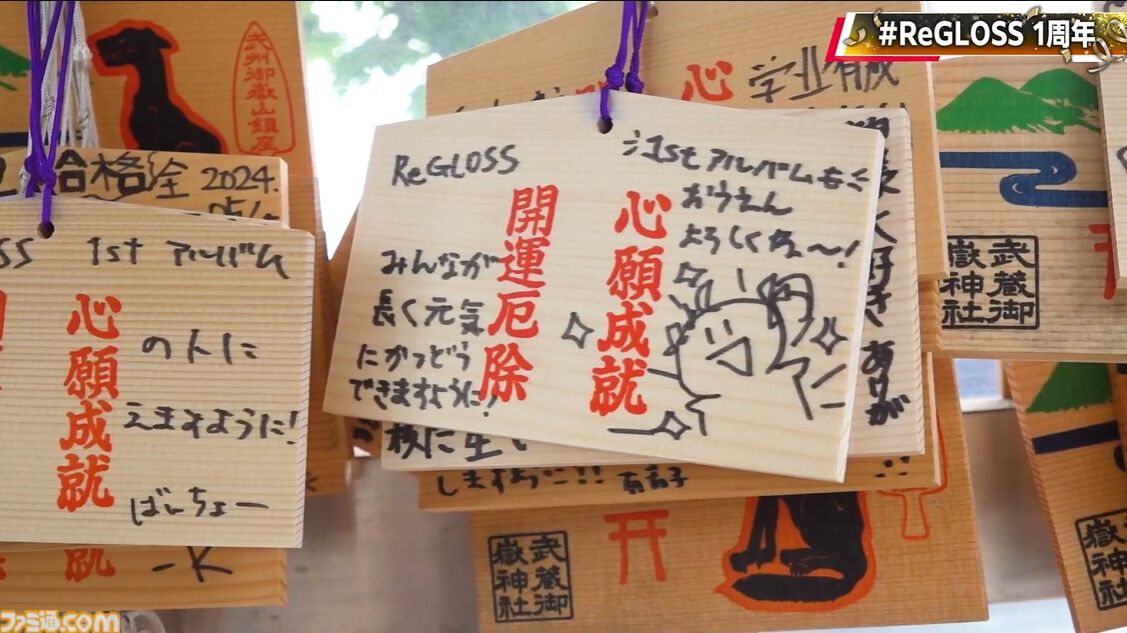 #ReGLOSS 1周年
武州御嶽山鎮座
心
学業成就
合格
2024.
ReGLOSS
1stアルバムも
おうえん
よろしくねー!
開運厄除
心願成就
みんなが
長く元気
にかつどう
できますように!
1st アルバム
心願成就
の人に
えますように!
ばんちょー
大好き
ありが
しますように!!
武蔵御嶽神社
武蔵御嶽神社
武蔵御嶽神社
ファミ通.com